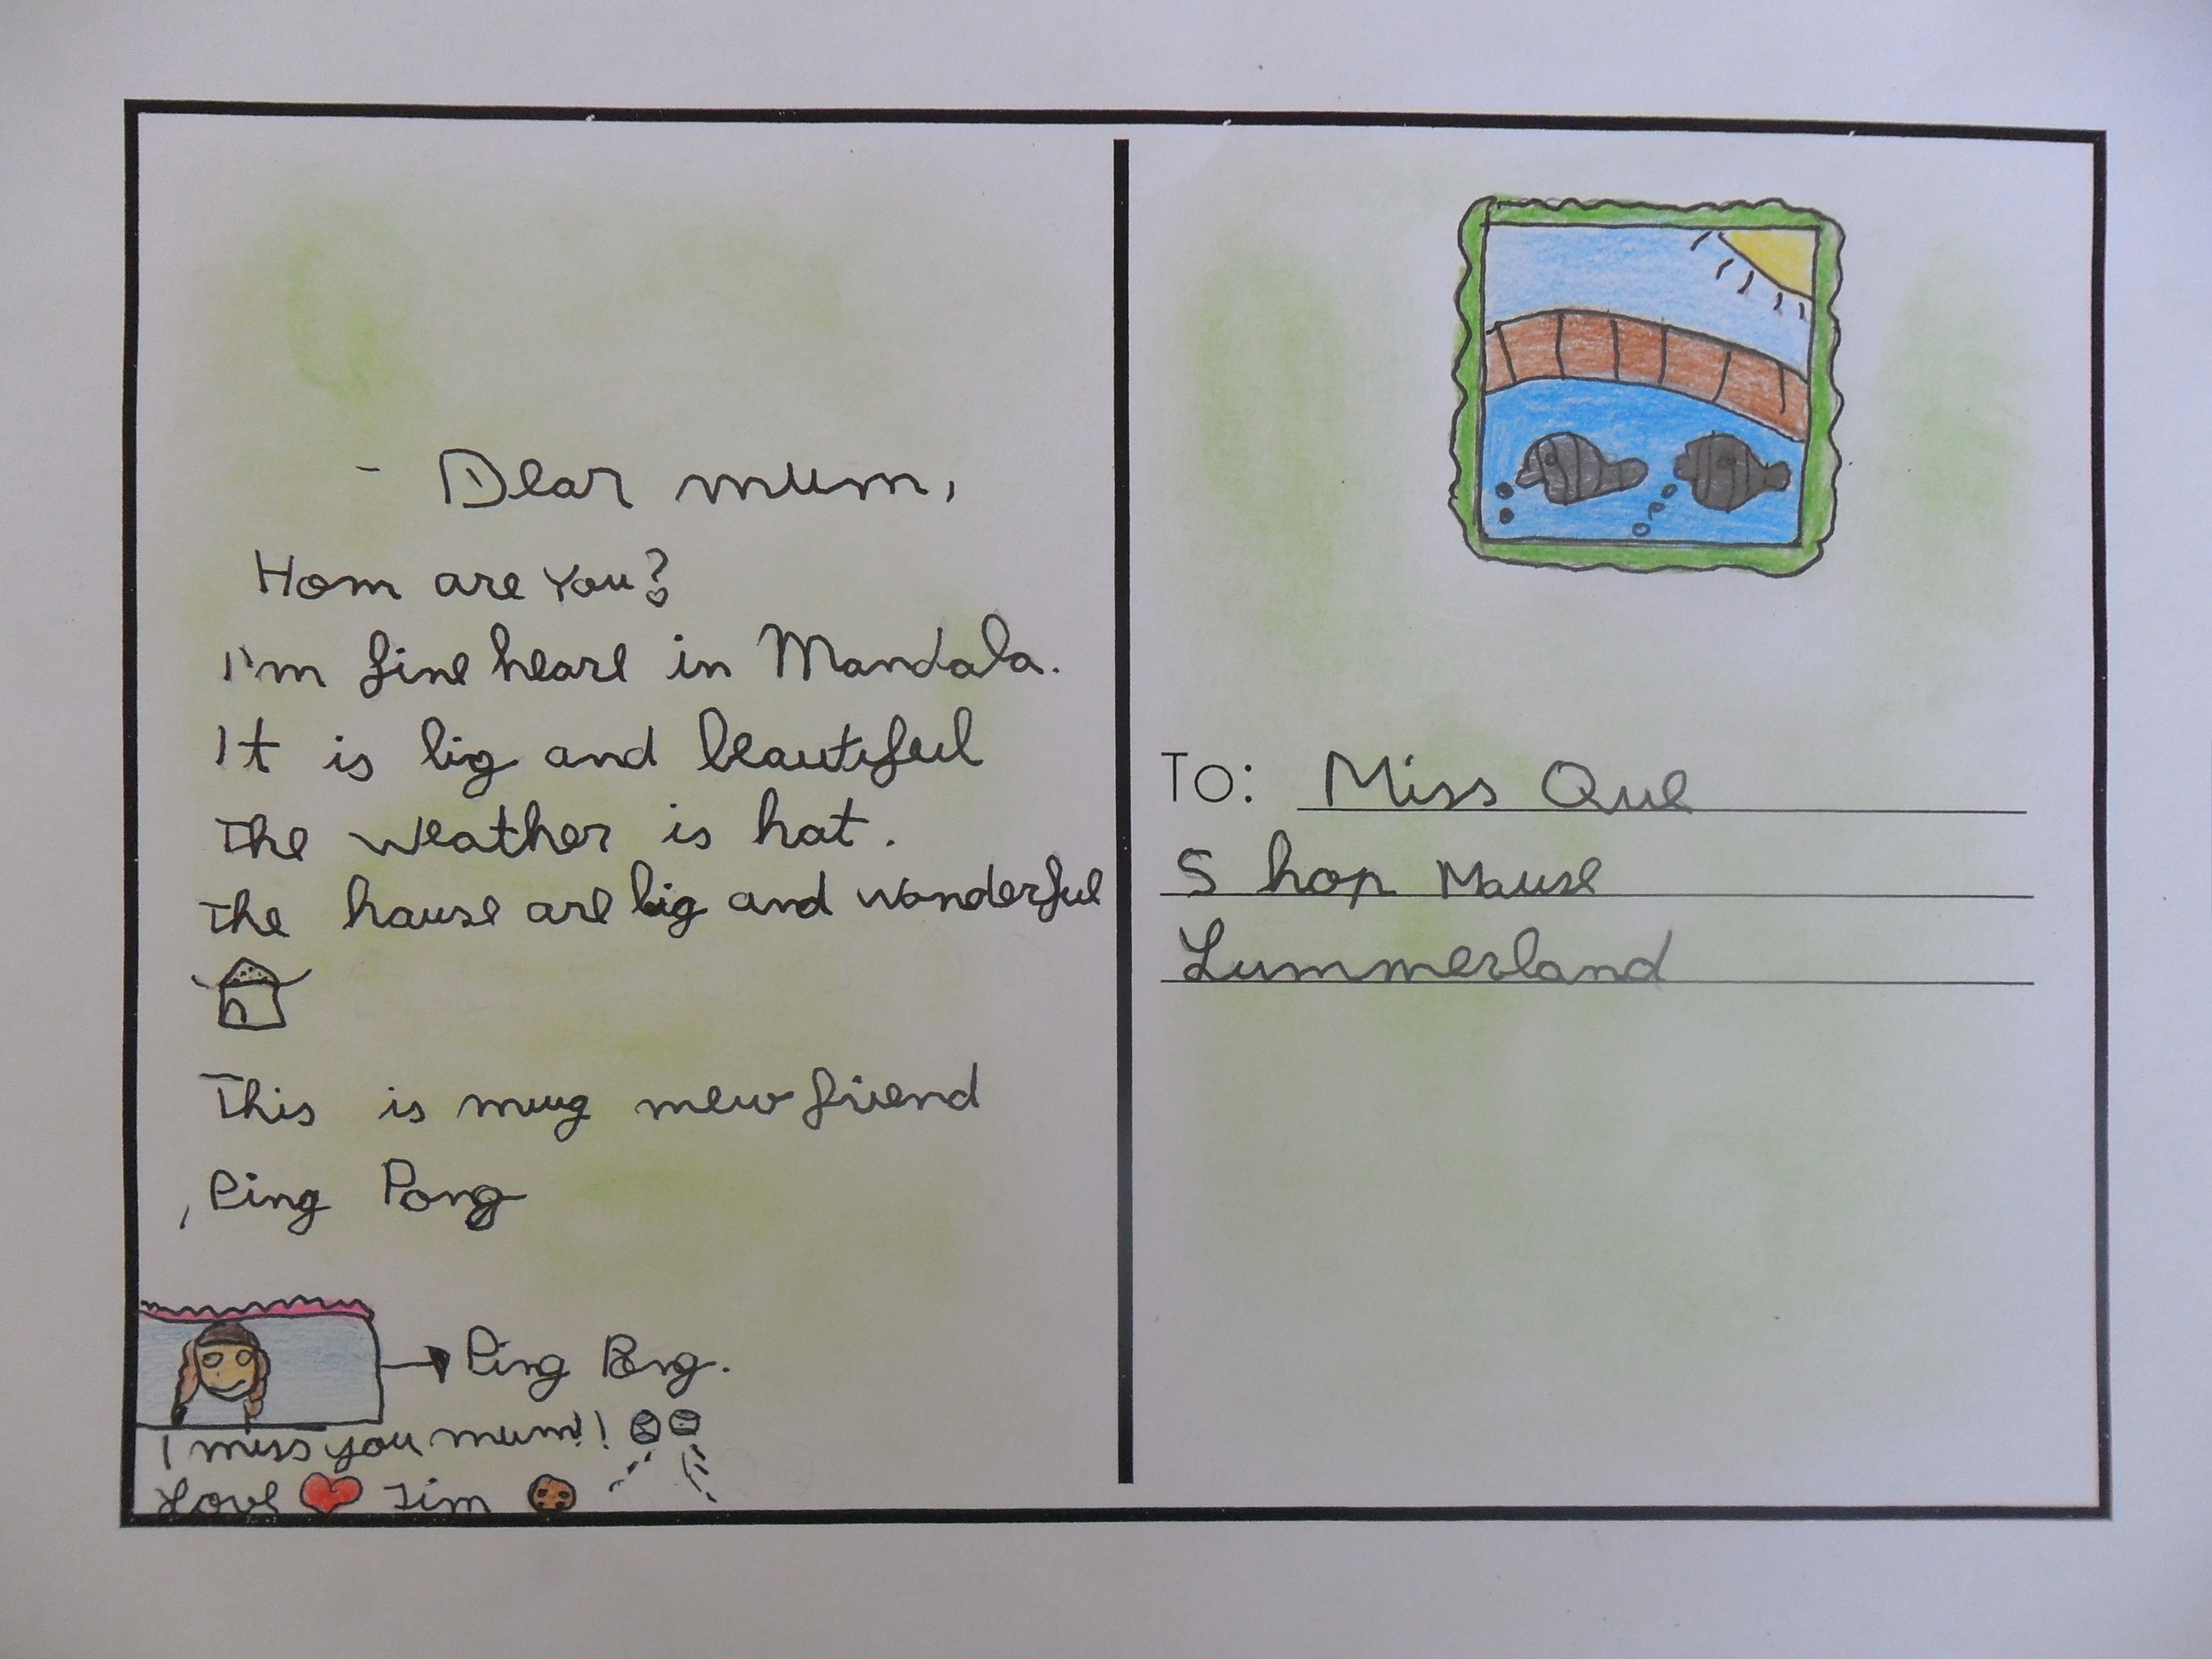 Dear mum,
How are You?
I'm fine heare in Mandala.
It is big and beautiful
The weather is hot.
The hause are big and wonderful
This is my new friend
Ping Pong
Ping Pong.
I miss you mum!!
Love Jim
TO: Miss Que
Shop Mause
Lummerland